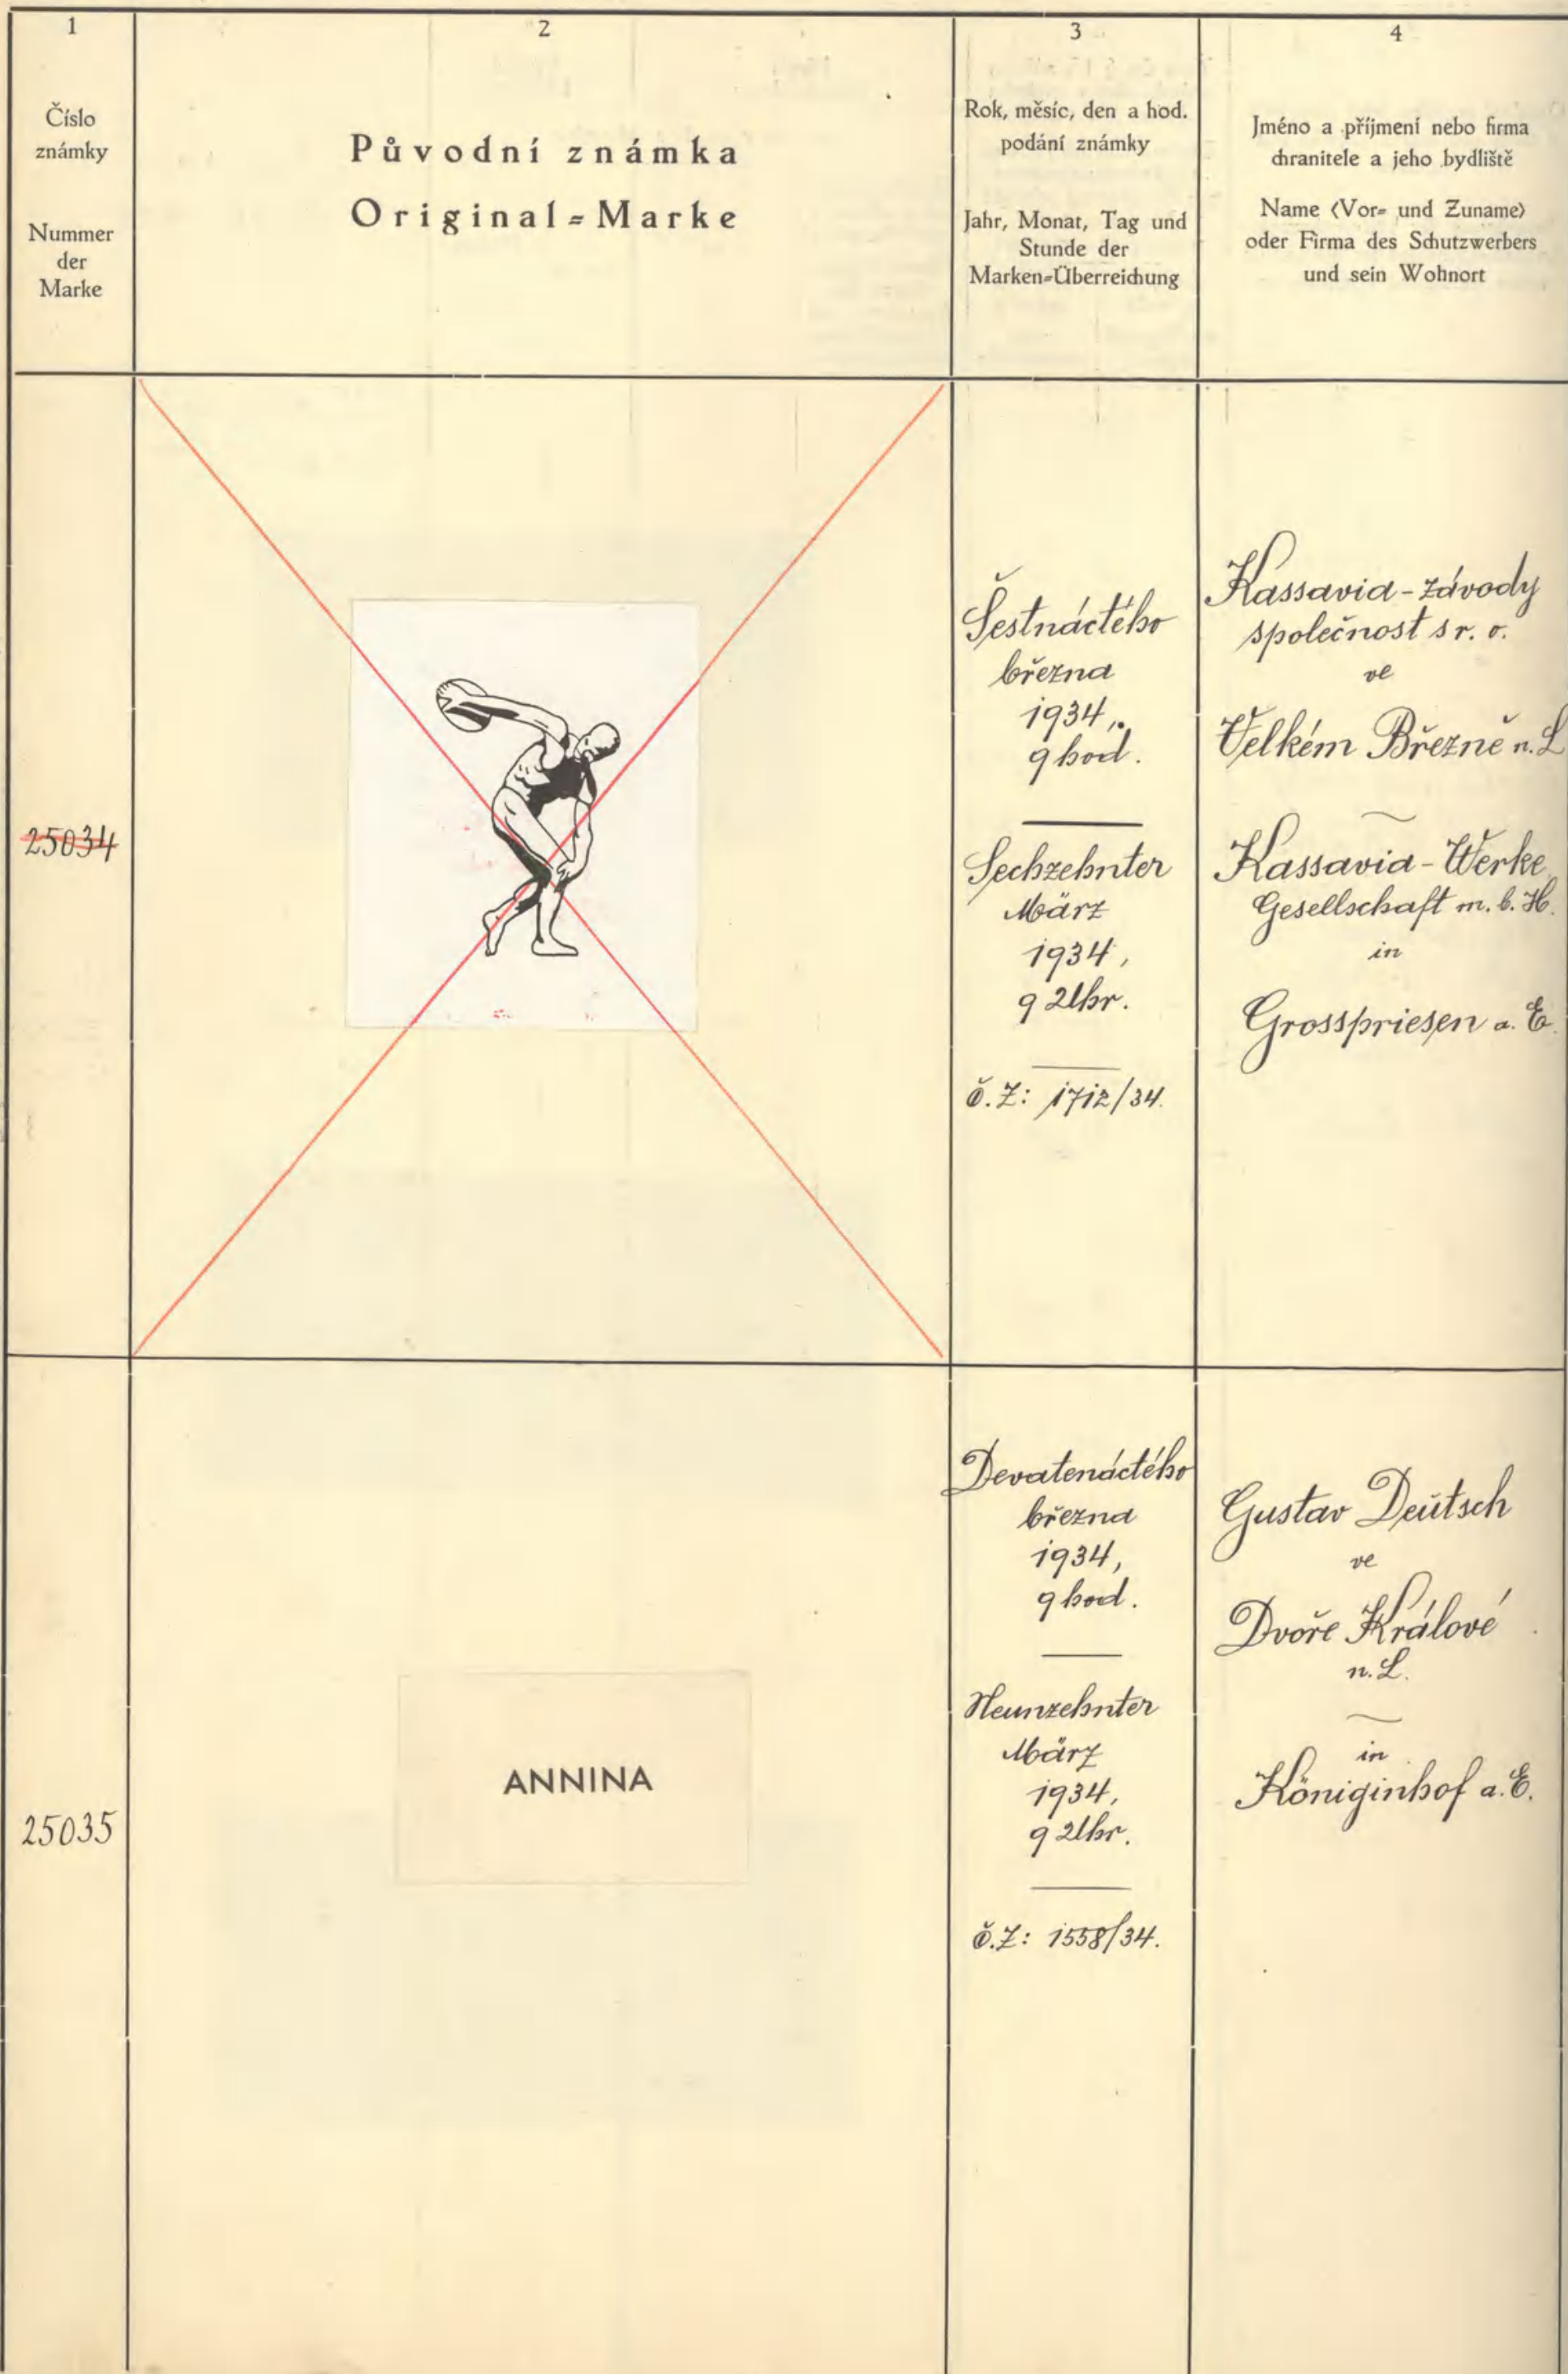 1
Číslo
známky
Nummer
der
Marke
2
Původní známka
Original=Marke
3
Rok, měsíc, den a hod.
podání známky
Jahr, Monat, Tag und
Stunde der
Marken=Überreichung
4
Jméno a příjmení nebo firma
chranitele a jeho bydliště
Name (Vor= und Zuname)
oder Firma des Schutzwerbers
und sein Wohnort
25034
Šestnáctého
března
1934,
9 hod.
Sechzehnter
März
1934,
9 Uhr.
č.Z: 1712/34.
Kassavia-závody
společnost s r. o.
ve
Velkém Březně n. L
Kassavia-Werke
Gesellschaft m. b. H.
in
Grosspriesen a. E.
25035
ANNINA
Devatenáctého
března
1934,
9 hod.
Neunzehnter
März
1934,
9 Uhr.
č.Z: 1558/34.
Gustav Deutsch
ve
Dvoře Králové
n. L.
in
Königinhof a. E.